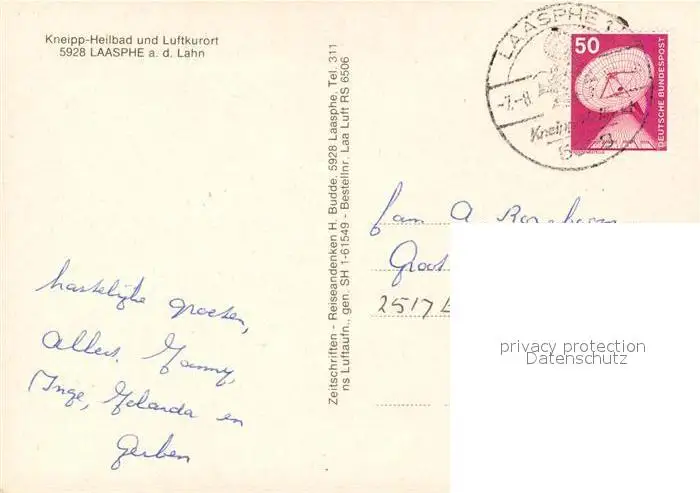 Kneipp-Heilbad und Luftkurort
5928 LAASPHE a. d. Lahn
hartelijke groeten,
Albert, Janny,
Inge, Jolanda en
Gerben
Zeitschriften - Reiseandenken H. Budde, 5928 Laasphe, Tel. 311
ns Luftaufn., gen. SH 1-61549 - Bestellnr. Laa Luft RS 6506
LAASPHE 1
-7.-8.
Kneipp
50
DEUTSCHE BUNDESPOST
fam A
Groot
2517
privacy protection
Datenschutz